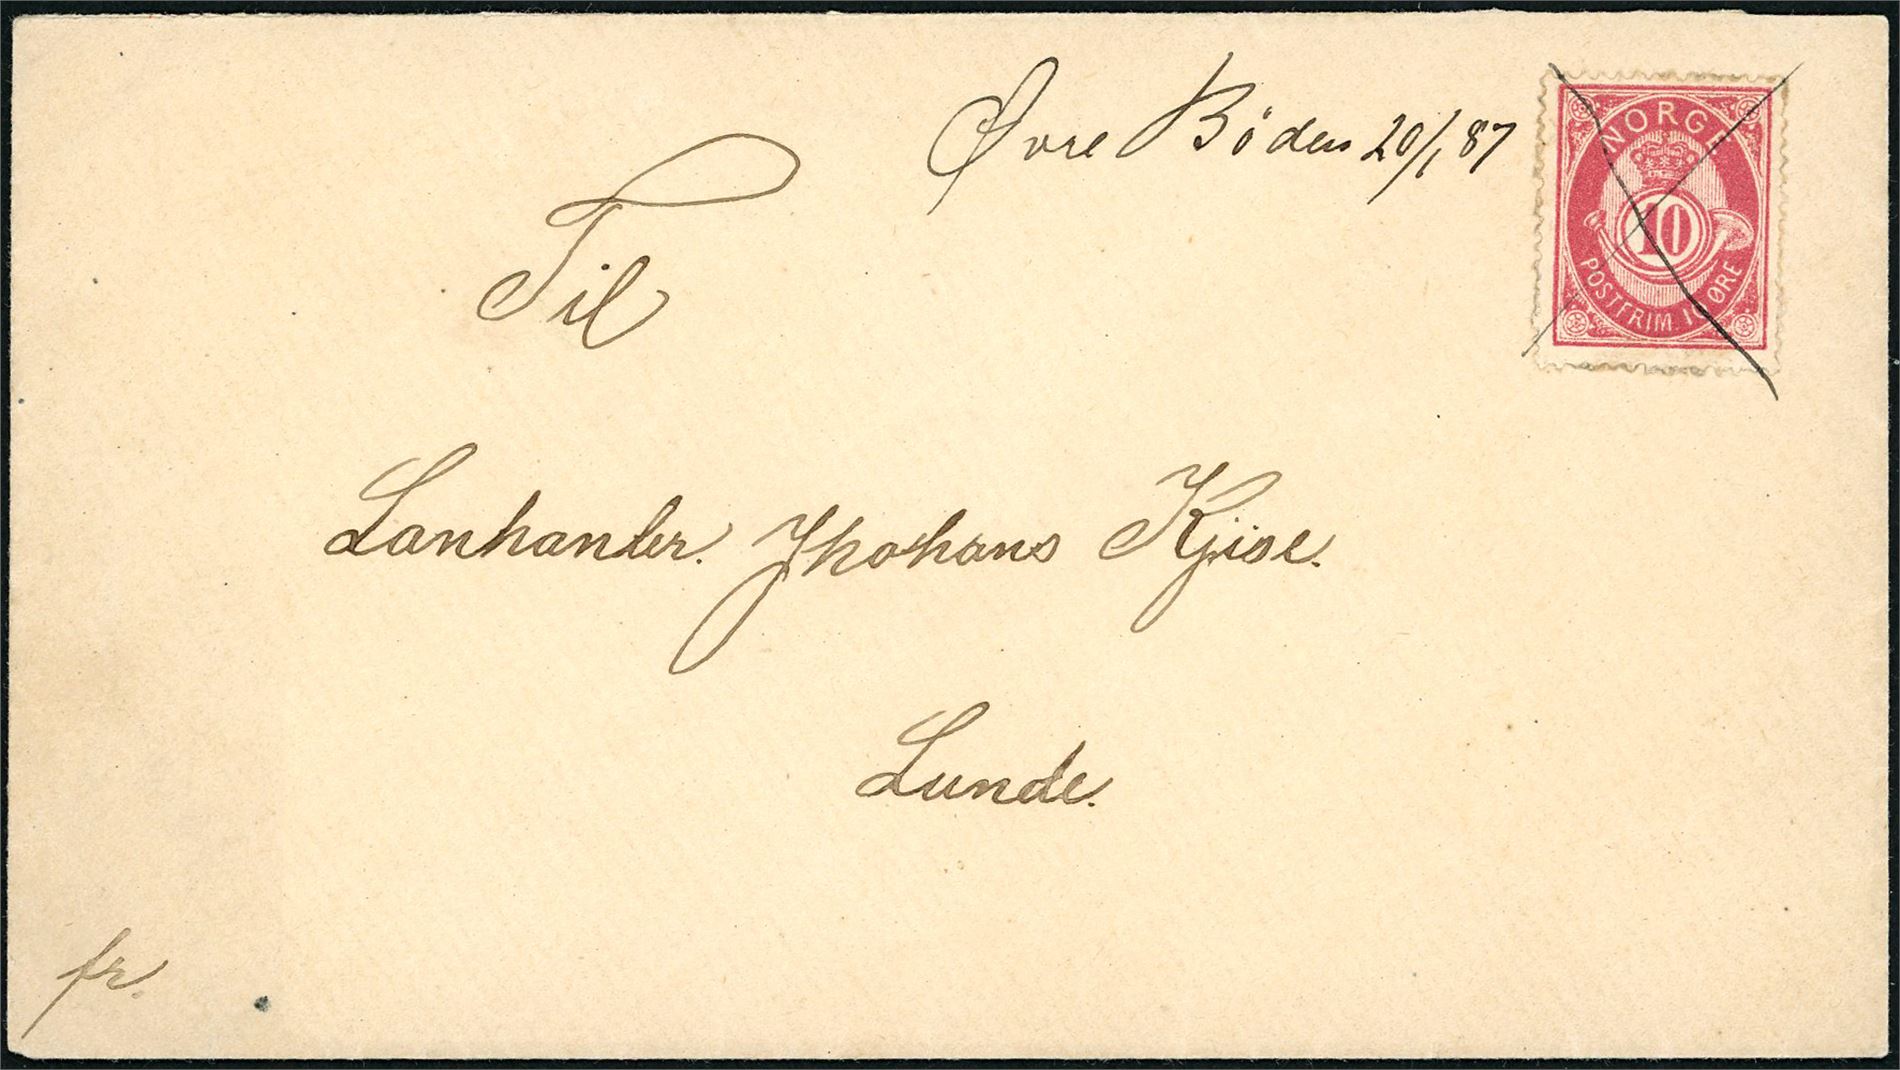 Øvre Böden 20/1 87
NORGE
10
POSTFRIM. 10 ØRE
Til
Lanhanler. Jhohans Kjise.
Lunde.
fr.